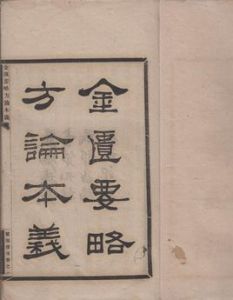 金匱要略
方論本義
金匱要略方論本義